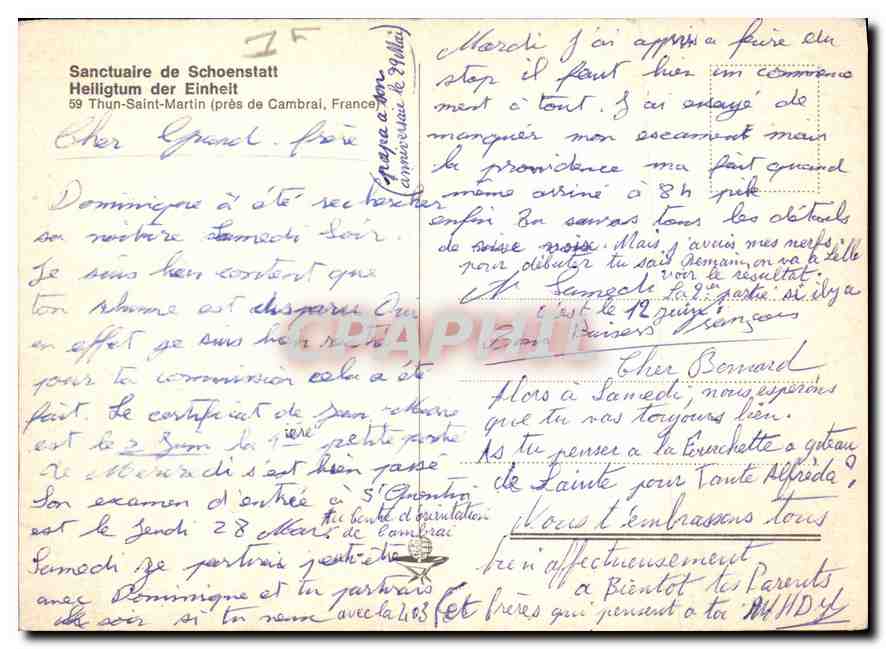 Sanctuaire de Schoenstatt
Heiligtum der Einheit
59 Thun-Saint-Martin (près de Cambrai, France)
(papa a son
anniversai le 29 Mai)
Cher Grand frère
Dominique à été rechercher
sa voiture Samedi Soir.
Je suis bien content que
ton rhume est disparu Oui
en effet je suis bien
pour ta commission cela a été
fait. Le certificat de Jean-Marie
est le 2 Juin la 1ière petite partie
Le Mercredi s'est bien passé
Son examen d'entrée à St Quentin
est le Jendi 28 Mai. Au centre d'orientation
de Cambrai
Samedi je partirais peut-être
avec Dominique et tu partirais
le soir si tu veux avec la 403
Mardi J'ai appris a faire du
stop il faut bien un commence
ment à tout. J'ai essayé de
manquér mon escament mais
la providence ma fait quand
même arrivé à 8h pile
enfin Tu sauras tous les détails
de vive voix. Mais j'avais mes nerfs,
pour débuter tu sais Demain, on va a Lille
voir le resultat.
Samedi La 2er partie si il y a
c'est le 12 juin.
Bons Baisers François
Cher Bernard
Alors à Samedi, nous esperons
que tu vas toujours bien.
As tu penser a la Fourchette a gateau
de Sainte pour Tante Alfréda?
Nous t'embrassons tous
bien affectueusement
a Bientot tes Parents
(et frères qui pensent a toi
CPARAMA